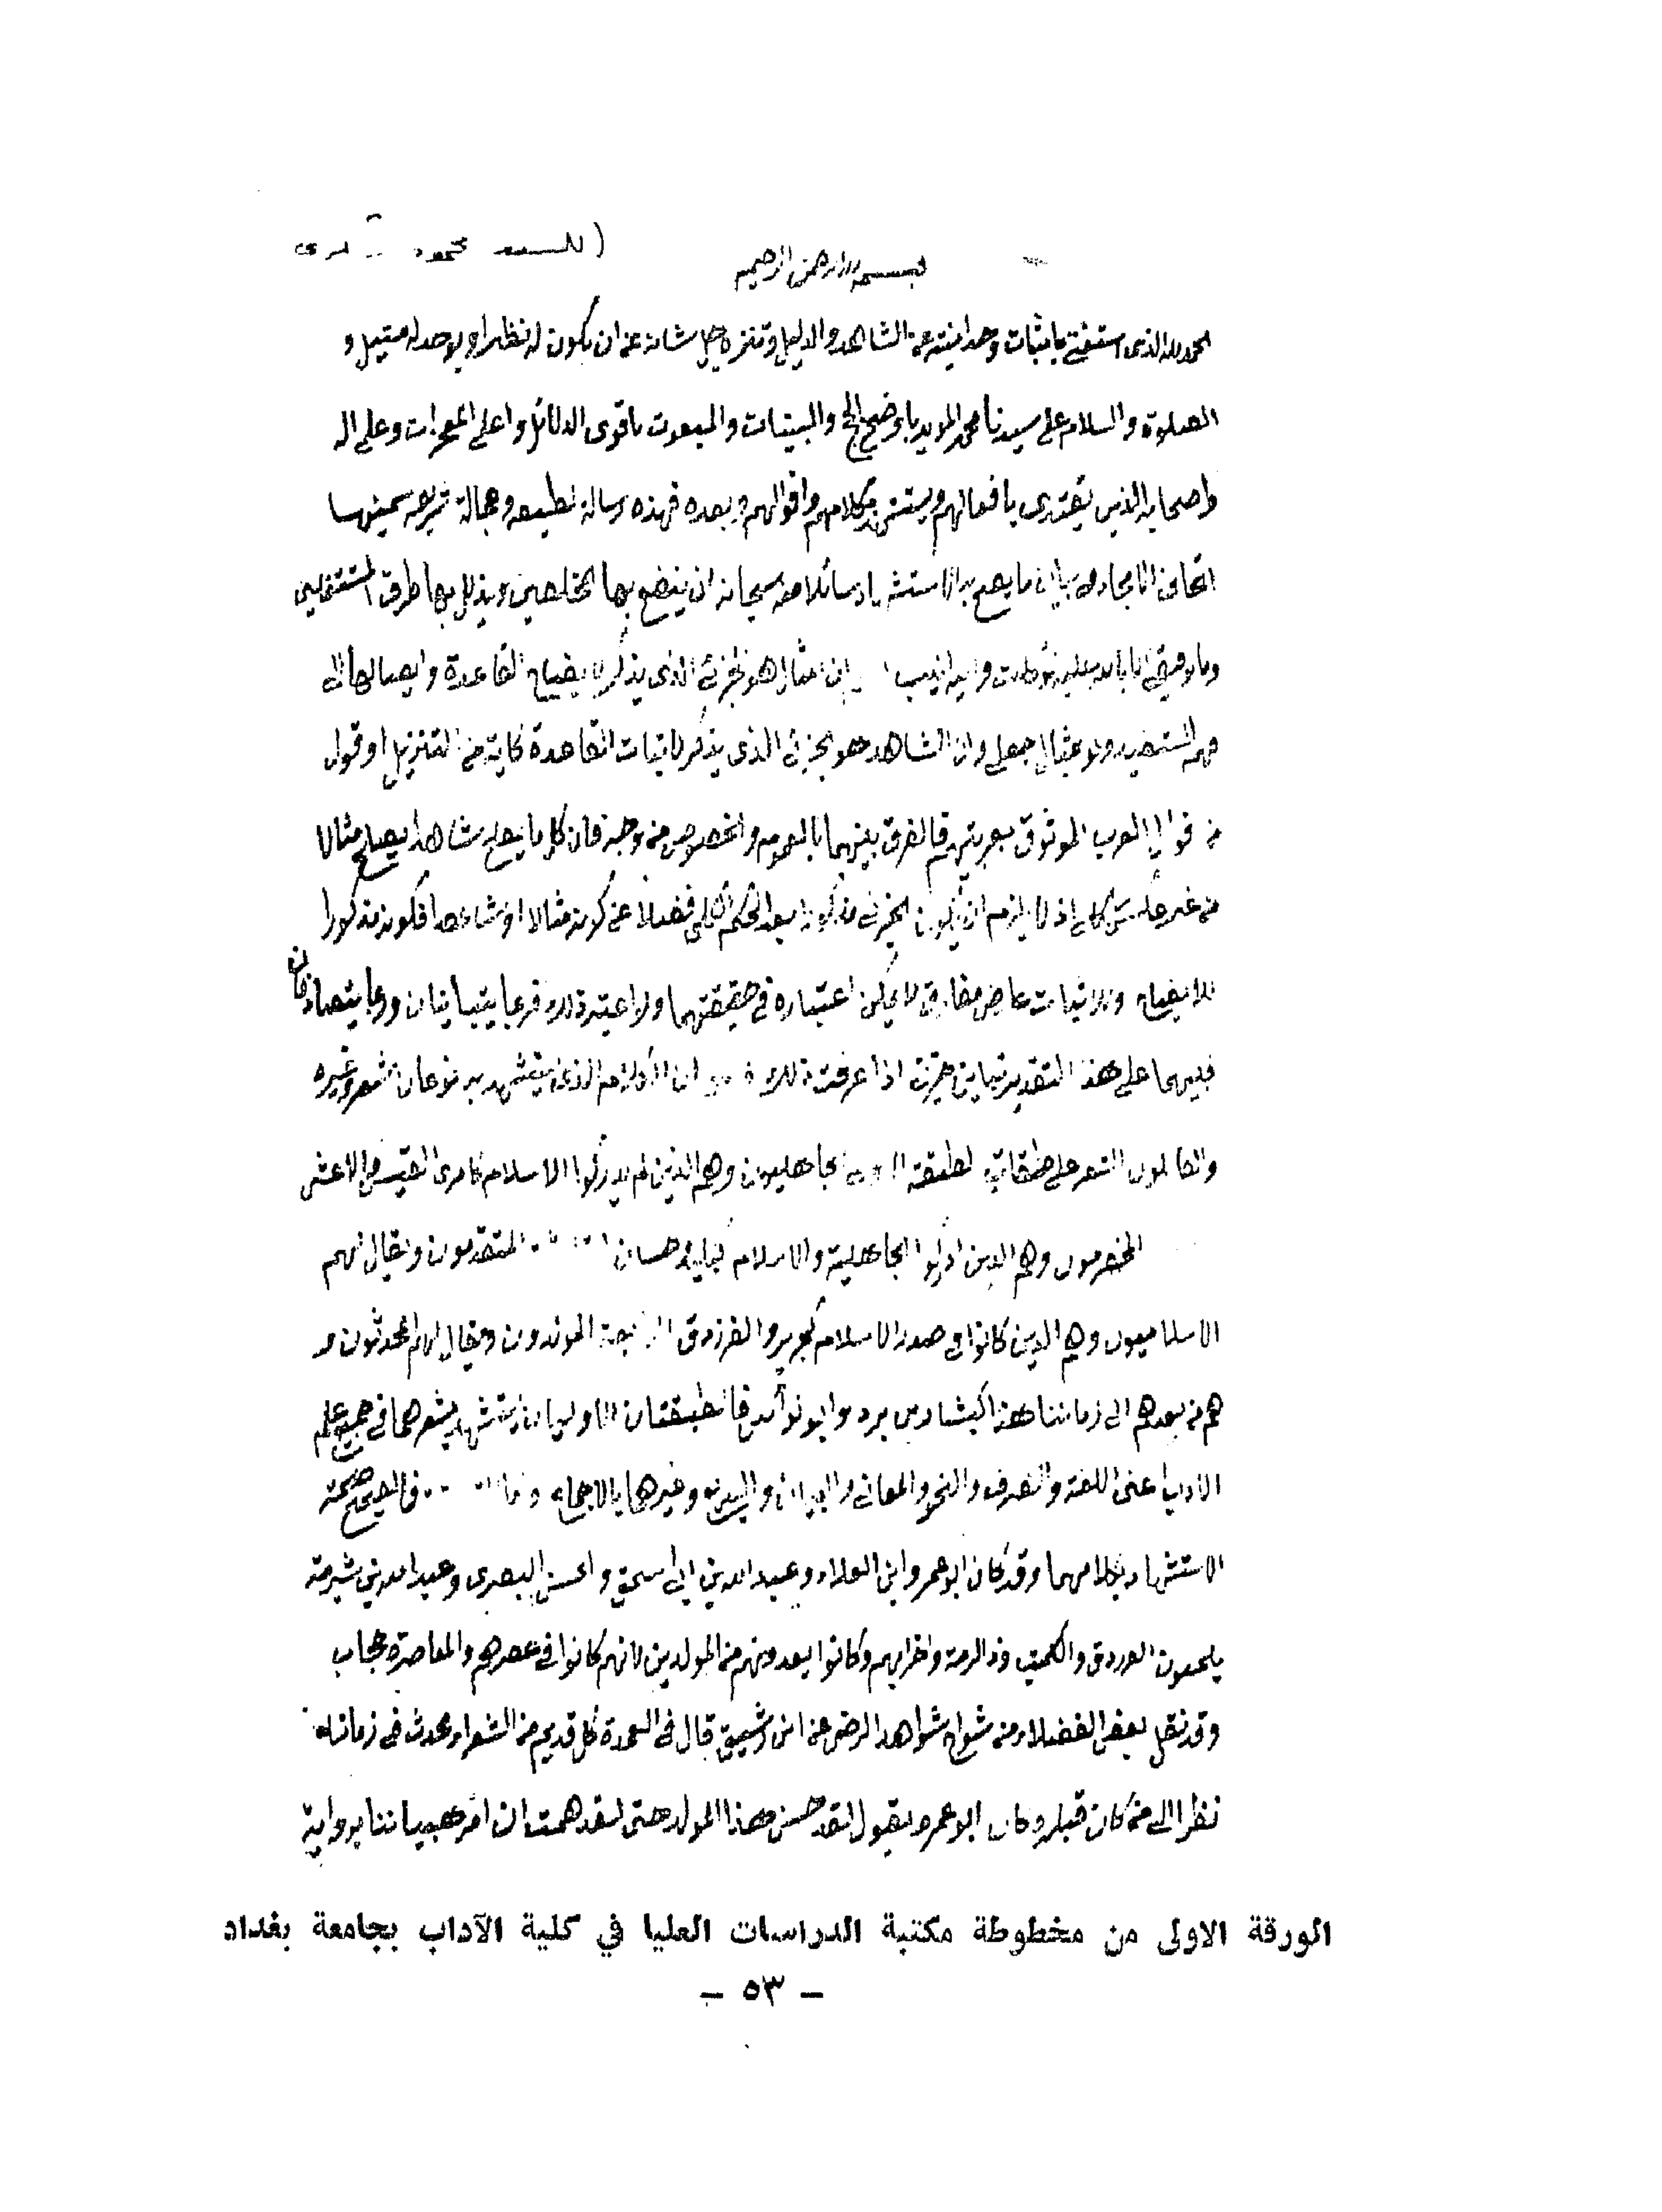 (للسيد محمود
بسم الله الرحمن الرحيم
الحمد لله الذي استغنى باثبات وحدانيته عن الشاهد والدليل وتنزه جل شانه عن ان يكون له نظير او يوجد له مثيل و
الصلوة والسلام على سيدنا محمد المويد باوضح الحجج والبينات والمبعوث باقوى الدلائل واعلى المعجزات وعلى اله
واصحابه الذين يقتدى بافعالهم ويستشهد بكلامهم واقوالهم وبعد فهذه رسالة لطيفه وعجالة شريفه سميتها
اتحاف الامجاد في بيان ما يصح به الاستشهاد سائلا منه سبحانه ان ينفع بها المخلصين ويذلل بها طرق المشتغلين
وما توفيقي الا بالله عليه توكلت واليه انيب ان المثال هو الجزئي الذي يذكر لايضاح القاعدة وايصالها الى
فهم المستفيد ولو بمثال جعلي وان الشاهد هو الجزئي الذي يذكر لاثبات القاعدة كاية من التنزيل او قول
من اقوال العرب الموثوق بعربيتهم فالفرق بينهما بالعموم والخصوص من وجه فان كل ما يصلح شاهدا يصلح مثالا
من غير عكس كلي اذ لا يلزم ان يكون الجزئي مذكورا بعد الحكم الكلي فضلا عن كونه مثالا او شاهدا فكونه مذكورا
للايضاح وللاثبات عارض مفارق لا يمكن اعتباره في حقيقتهما ولو اعتبر ذلك فربما يتباينان وربما يتصادقان
فبينهما على هذا التقدير تباين جزئي اذا عرفت ذلك ان الكلام الذي يستشهد به نوعان شعر وغيره
والقائلون الشعر على طبقات الطبقة الاولى الجاهليون وهم الذين لم يدركوا الاسلام كامرئ القيس والاعشى
المخضرمون وهم الذين ادركوا الجاهلية والاسلام كلبيد وحسان المتقدمون ويقال لهم
الاسلاميون وهم الذين كانوا في صدر الاسلام كجرير والفرزدق الرابعة المولدون ويقال لهم المحدثون و
هم من بعدهم الى زماننا هذا كبشار بن برد وابو نواس فالطبقتان الاوليان يستشهد بشعرهما في جميع علم
الاداب اعني اللغة والصرف والنحو والمعاني والبيان والبديع وغيرها بالاجماع فالصحيح صحة
الاستشهاد بكلامهما وقد كان ابو عمرو ابن العلاء وعبد الله بن ابي اسحق والحسن البصري وعبد الله بن شبرمة
يلحنون الفرزدق والكميت وذا الرمة واضرابهم وكانوا يعدونهم من المولدين لانهم كانوا في عصرهم والمعاصرة حجاب
وقد نقل بعض الفضلاء من شراح شواهد الرضي عن ابن رشيق قال في العمدة كل قديم من الشعراء محدث في زمانه
نظرا الى من كان قبله وكان ابو عمرو يقول لقد حسن هذا المولد حتى لقد هممت ان امر صبياننا برواية
الورقة الاولى من مخطوطة مكتبة الدراسات العليا في كلية الآداب بجامعة بغداد
– ٥٣ –